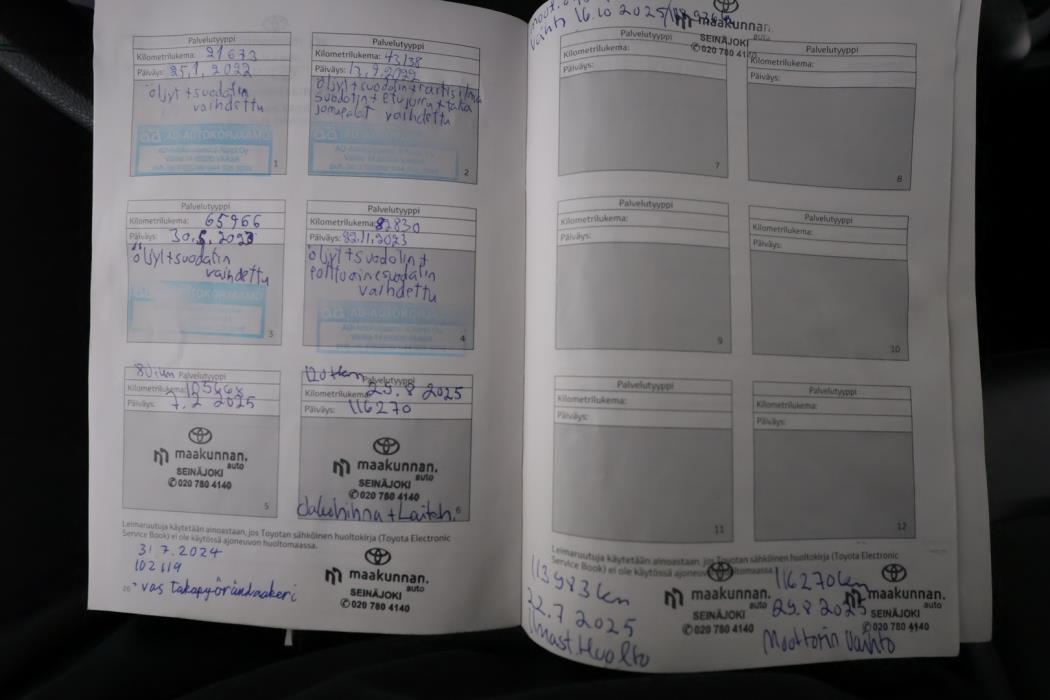 Palvelutyyppi
Kilometrilukema: 21673
Päiväys: 25.1.2022
öljyt+suodatin
vaihdettu
AD-AUTOKORJAAMO
1
Palvelutyyppi
Kilometrilukema: 43138
Päiväys: 13.9.2022
öljyt+suodatin+raitisilma
suodatin+etujarru+taka
jarrupalat vaihdettu
2
Palvelutyyppi
Kilometrilukema: 65966
Päiväys: 30.5.2023
öljyt+suodatin
vaihdettu
AD-AUTOKORJAAMO
3
Palvelutyyppi
Kilometrilukema: 82830
Päiväys: 22.11.2023
öljyt+suodatin+
polttoainesuodatin
vaihdettu
AD-AUTOKORJAAMO
4
Palvelutyyppi
Kilometrilukema:
Päiväys: 7.2 2025
maakunnan.
auto
SEINÄJOKI
020 780 4140
5
120tkm
Palvelutyyppi
Kilometrilukema: 25.8 2025
Päiväys: 116270
maakunnan.
auto
SEINÄJOKI
020 780 4140
Jakohihna+Laiteh.
6
Leimaruutuja käytetään ainoastaan, jos Toyotan sähköinen huoltokirja (Toyota Electronic
Service Book) ei ole käytössä ajoneuvon huoltomaassa.
31.7.2024
102119
vas takapyöränlaakeri
maakunnan.
auto
SEINÄJOKI
020 780 4140
26
vaihto 16.10 2025
maakunnan.
auto
SEINÄJOKI
020 780 4140
Palvelutyyppi
Kilometrilukema:
Päiväys:
7
Palvelutyyppi
Kilometrilukema:
Päiväys:
8
Palvelutyyppi
Kilometrilukema:
Päiväys:
9
Palvelutyyppi
Kilometrilukema:
Päiväys:
10
Palvelutyyppi
Kilometrilukema:
Päiväys:
11
Palvelutyyppi
Kilometrilukema:
Päiväys:
12
Leimaruutuja käytetään ainoastaan, jos Toyotan sähköinen huoltokirja (Toyota Electronic
Service Book) ei ole käytössä ajoneuvon huoltomaassa.
113983 km
22.7 2025
Ilmast Huolto
maakunnan.
auto
SEINÄJOKI
020 780 4140
116270km
29.8 2025
Moottorin Vaihto
maakunnan.
auto
SEINÄJOKI
020 780 4140